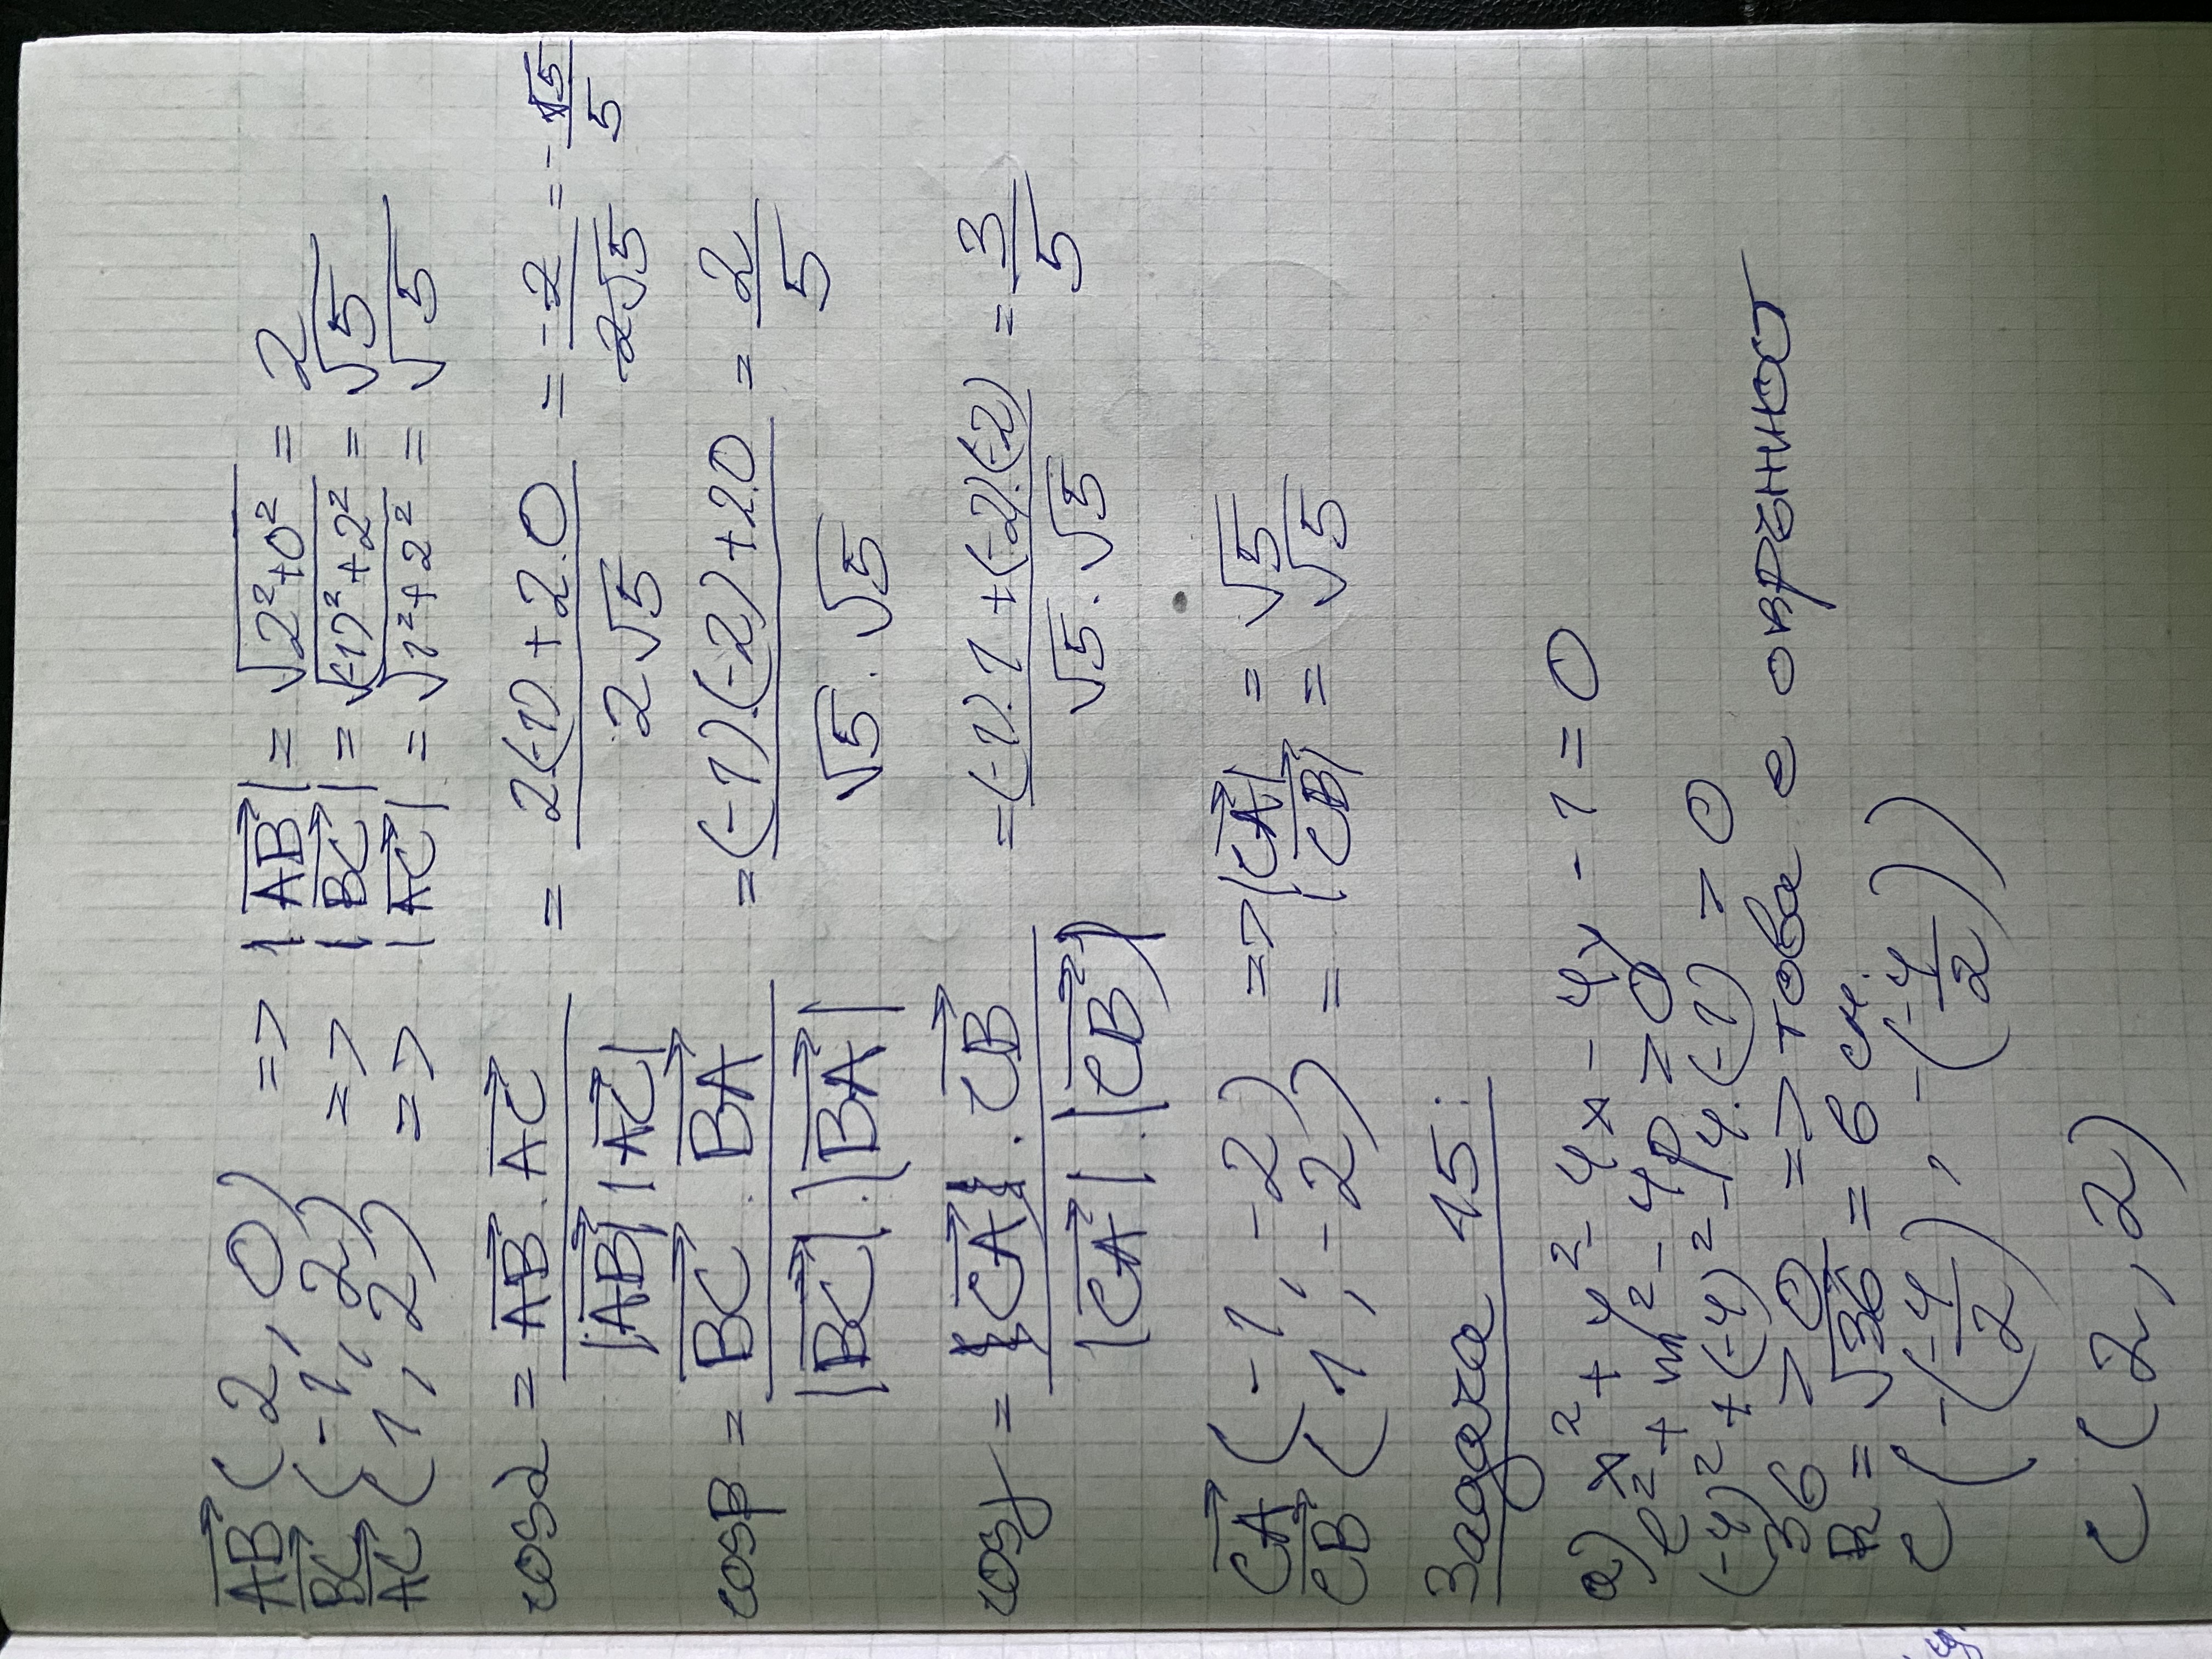 AB (2, 0) => |AB| = √2²+0² = 2
BC (-1, 2) => |BC| = √(-1)²+2² = √5
AC (1, 2) => |AC| = √1²+2² = √5
cosα = AB . AC / |AB| |AC| = 2(-1) + 2.0 / 2√5 = -2 / 2√5 = - √5 / 5
cosβ = BC . BA / |BC| . |BA| = (-1).(-2) + 2.0 / √5 . √5 = 2 / 5
cosγ = CA . CB / |CA| . |CB| = (-1).1 + (-2).(-2) / √5 . √5 = 3 / 5
CA (-1, -2) => |CA| = √5
CB (1, -2) = |CB| = √5
Задача 15:
а) x² + y² - 4x - 4y - 1 = 0
l² + m² - 4p > 0
(-4)² + (-4)² - 4.(-1) > 0
36 > 0 => това е окръжност
R = √36 = 6 см.
C (-(-4/2), -(-4/2))
C (2, 2)